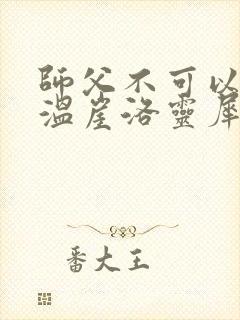 師父不可以
溫崖洛靈犀
番大王